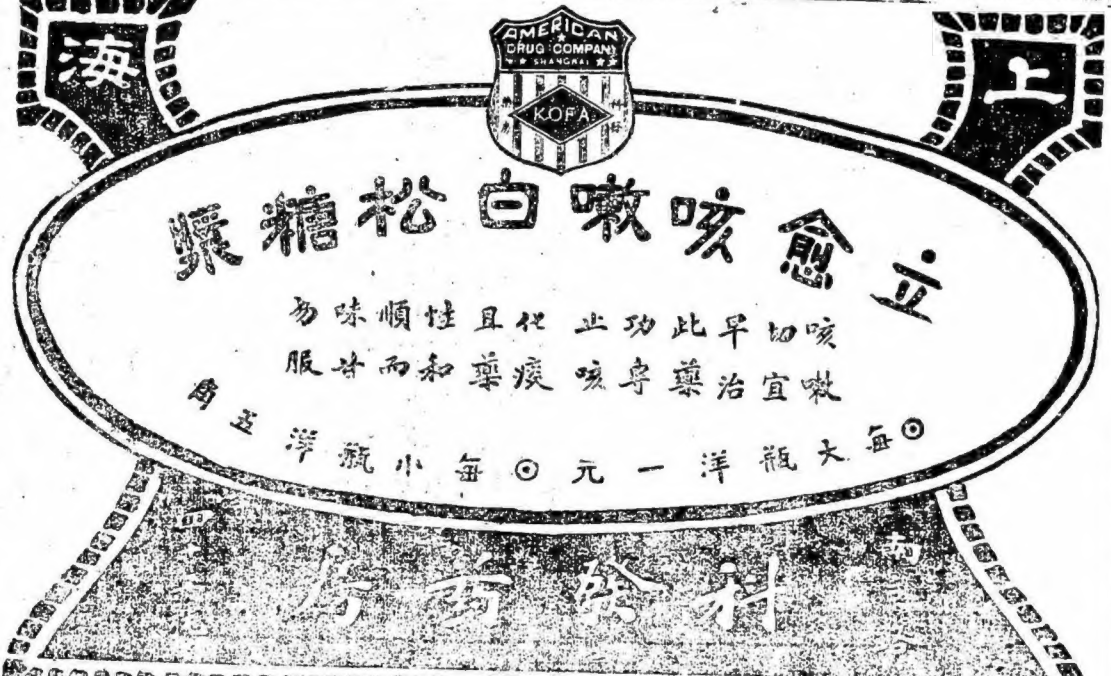 上海
AMERICAN
DRUG COMPANY
SHANGHAI
KOFA
立愈咳嗽白松糖漿
咳嗽切宜早治此藥功專止咳化痰且藥性和順而味甘易服
⊙每大瓶洋一元⊙每小瓶洋五角
科發药房